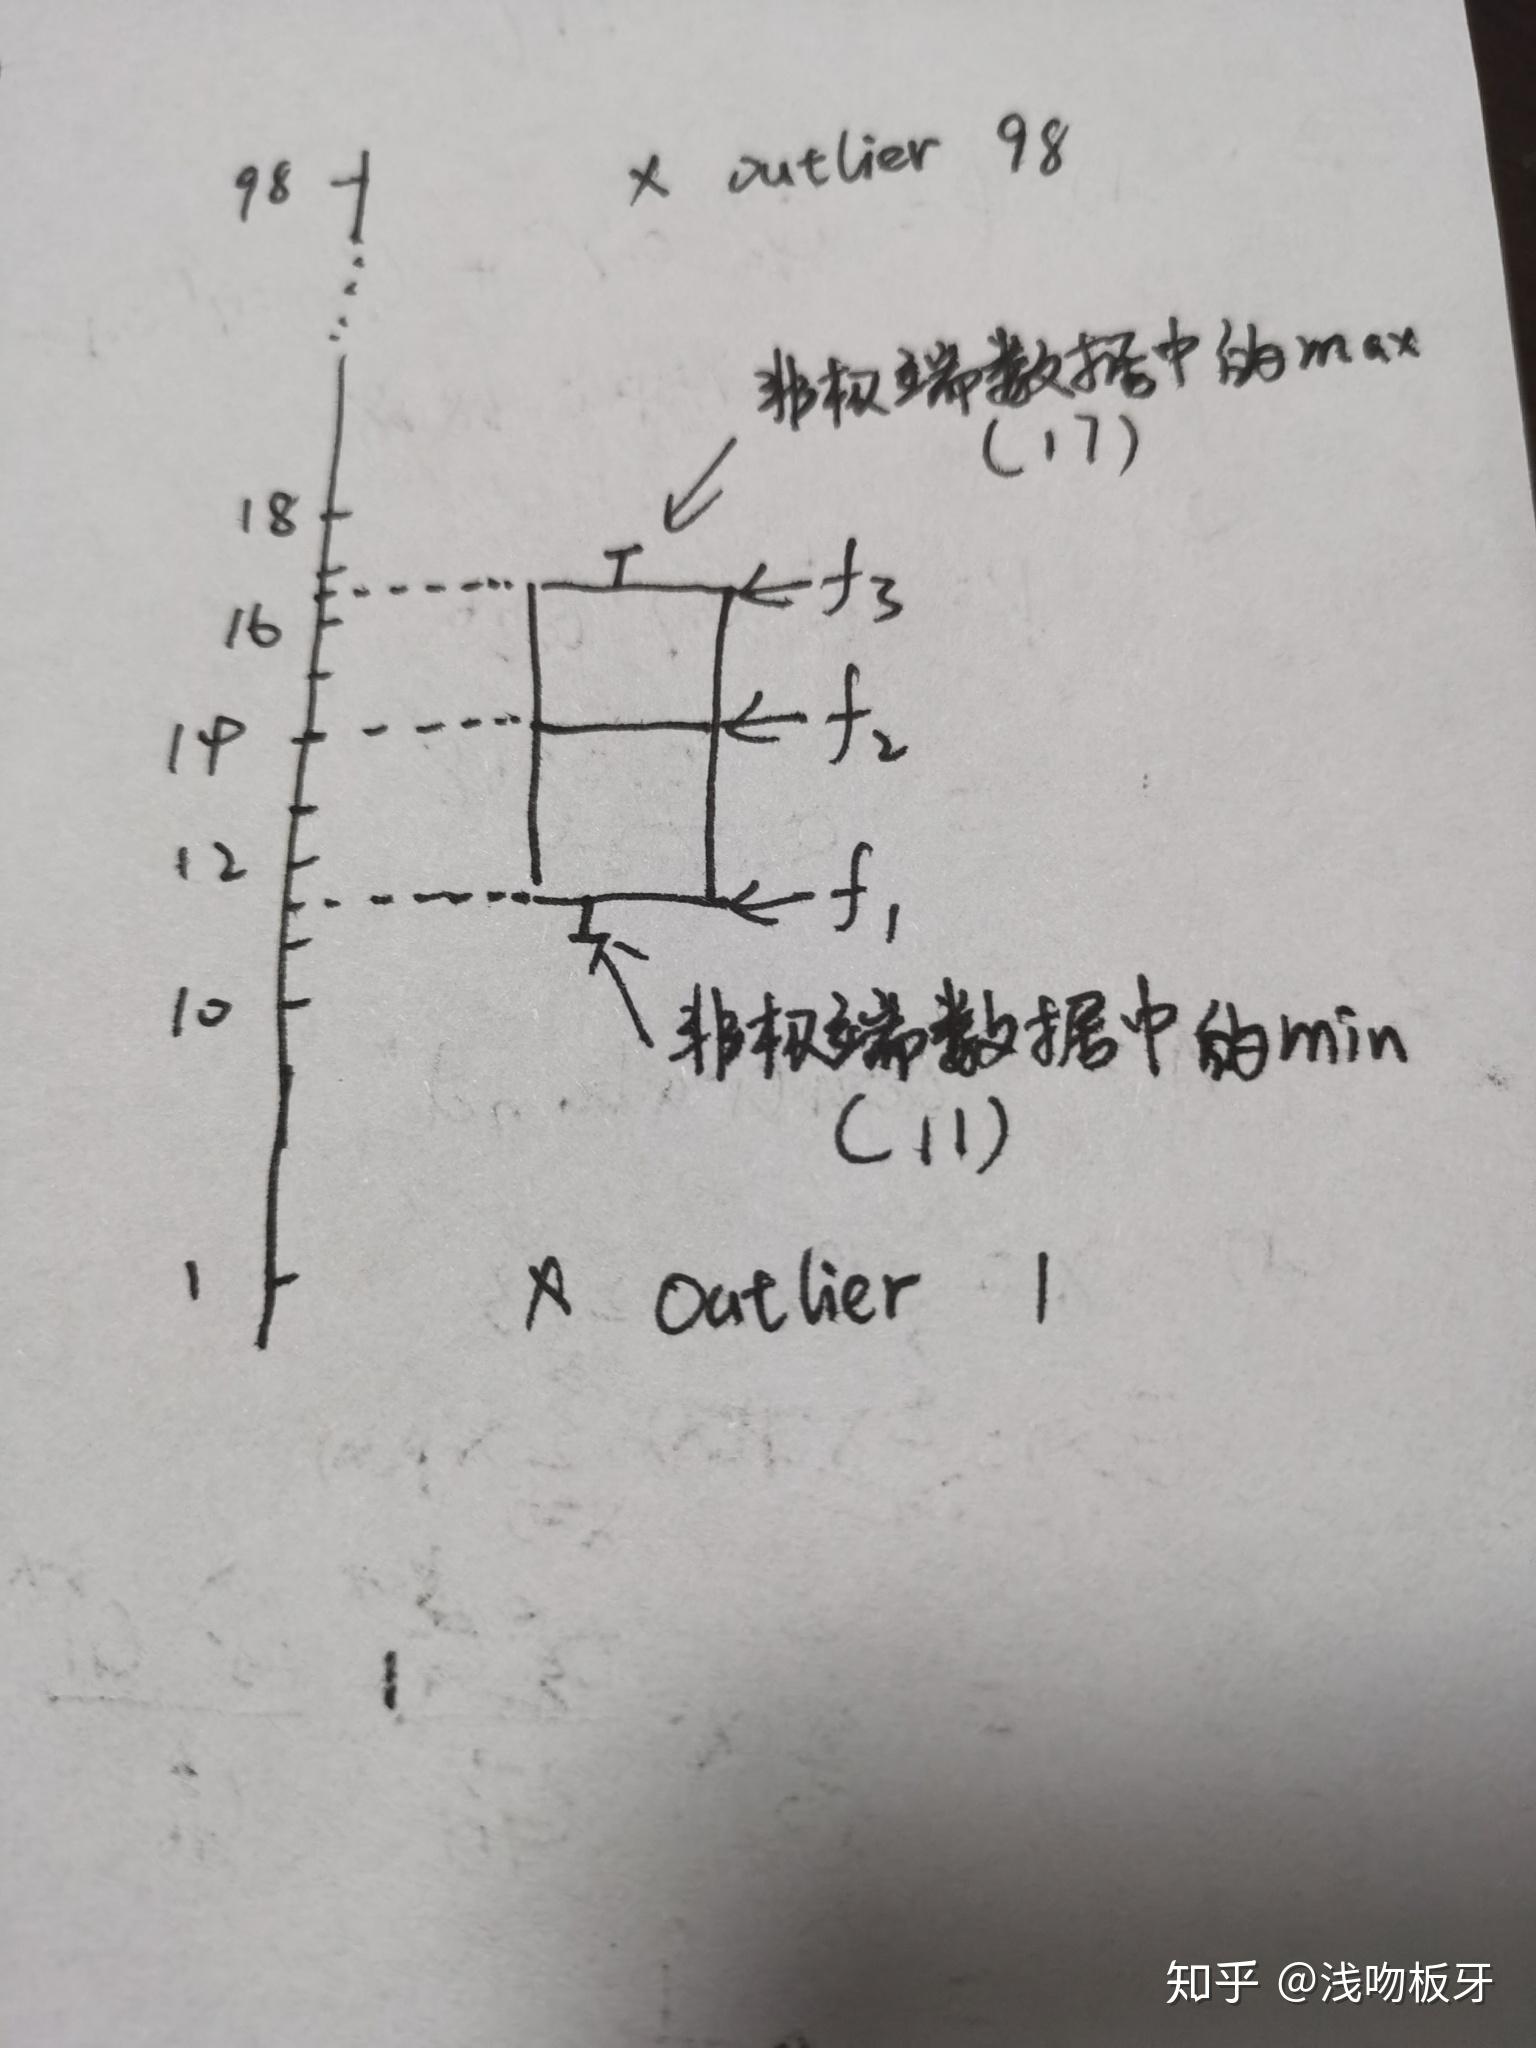 98
x outlier 98
非极端数据中的max
(17)
18
f3
16
f2
14
12
f1
10
非极端数据中的min
(11)
1
x outlier 1
知乎 @浅吻板牙